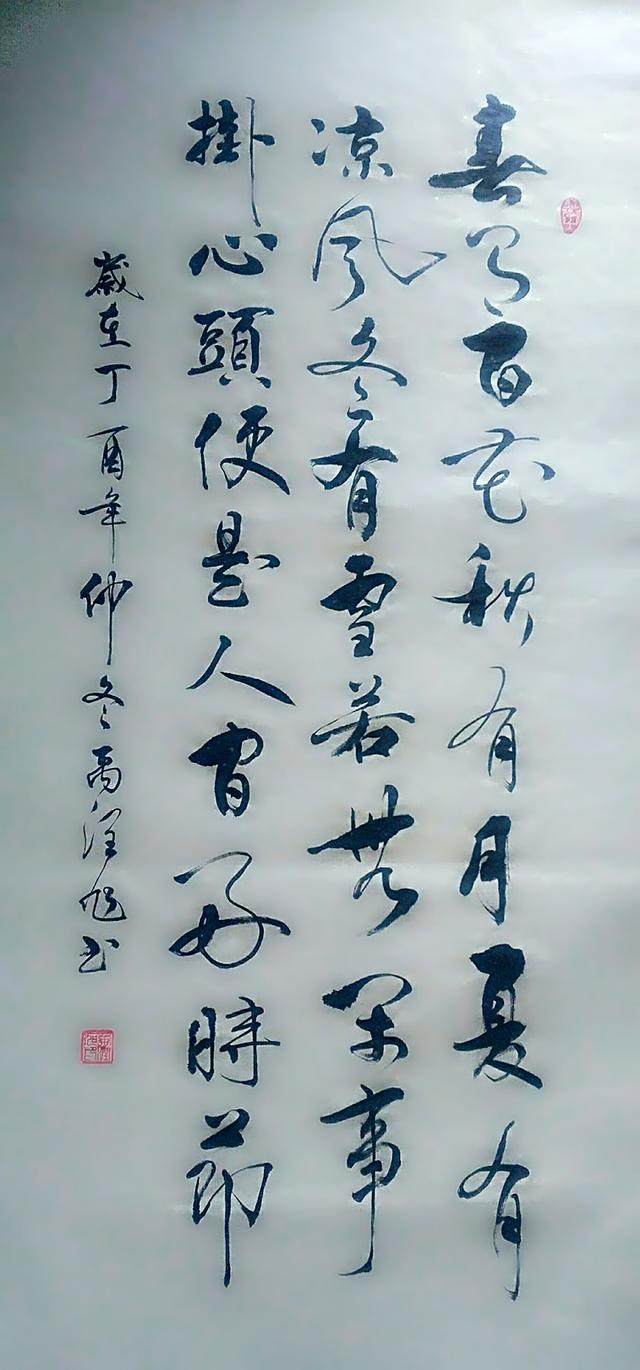 春有百花秋有月夏有
凉风冬有雪若無闲事
掛心頭便是人间好時節
歲在丁酉年仲冬禹泽旭书